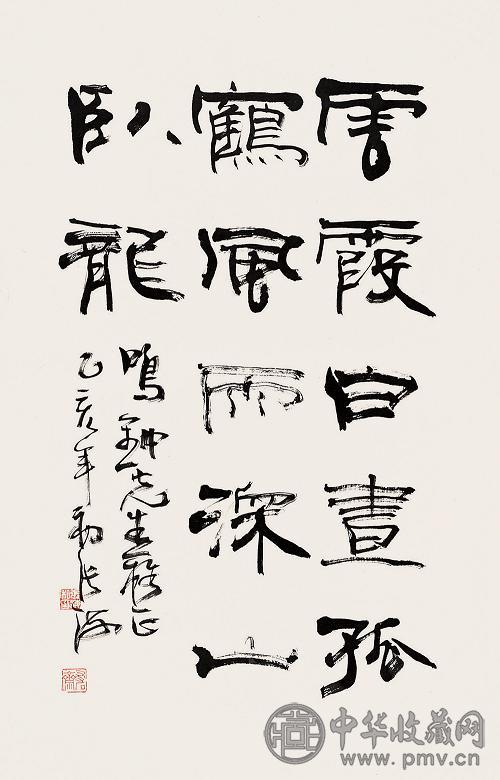 雲霞白晝孤
鶴風雨深山
臥龍
鳴鈡先生雅正
乙亥年初张海
中华收藏网
www.pmv.cn